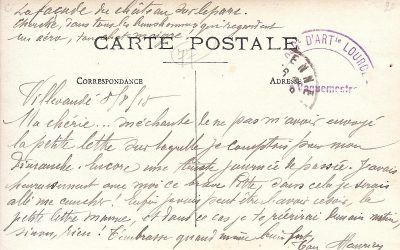 La façade du château sur le parc.
Cherche, dans tous les bonshommes qui regardent
un aéro,
CARTE POSTALE
CORRESPONDANCE
ADRESSE
D'ART Ie LOURDE
Vaguemestre
8/8/15
Ma chérie... méchante de ne pas m'avoir envoyé
la petite lettre sur laquelle je comptais pour mon
Dimanche. Encore une triste journée de passée. J'avais
heureusement avec moi ce brave sans cela je serais
allé me coucher! Enfin j'aurais peut être l'avoir ce soir, la
petite lettre mauve, et dans ce cas je demain matin,
sinon, rien! T'embrasse quand même bien fort
Ton Maurice